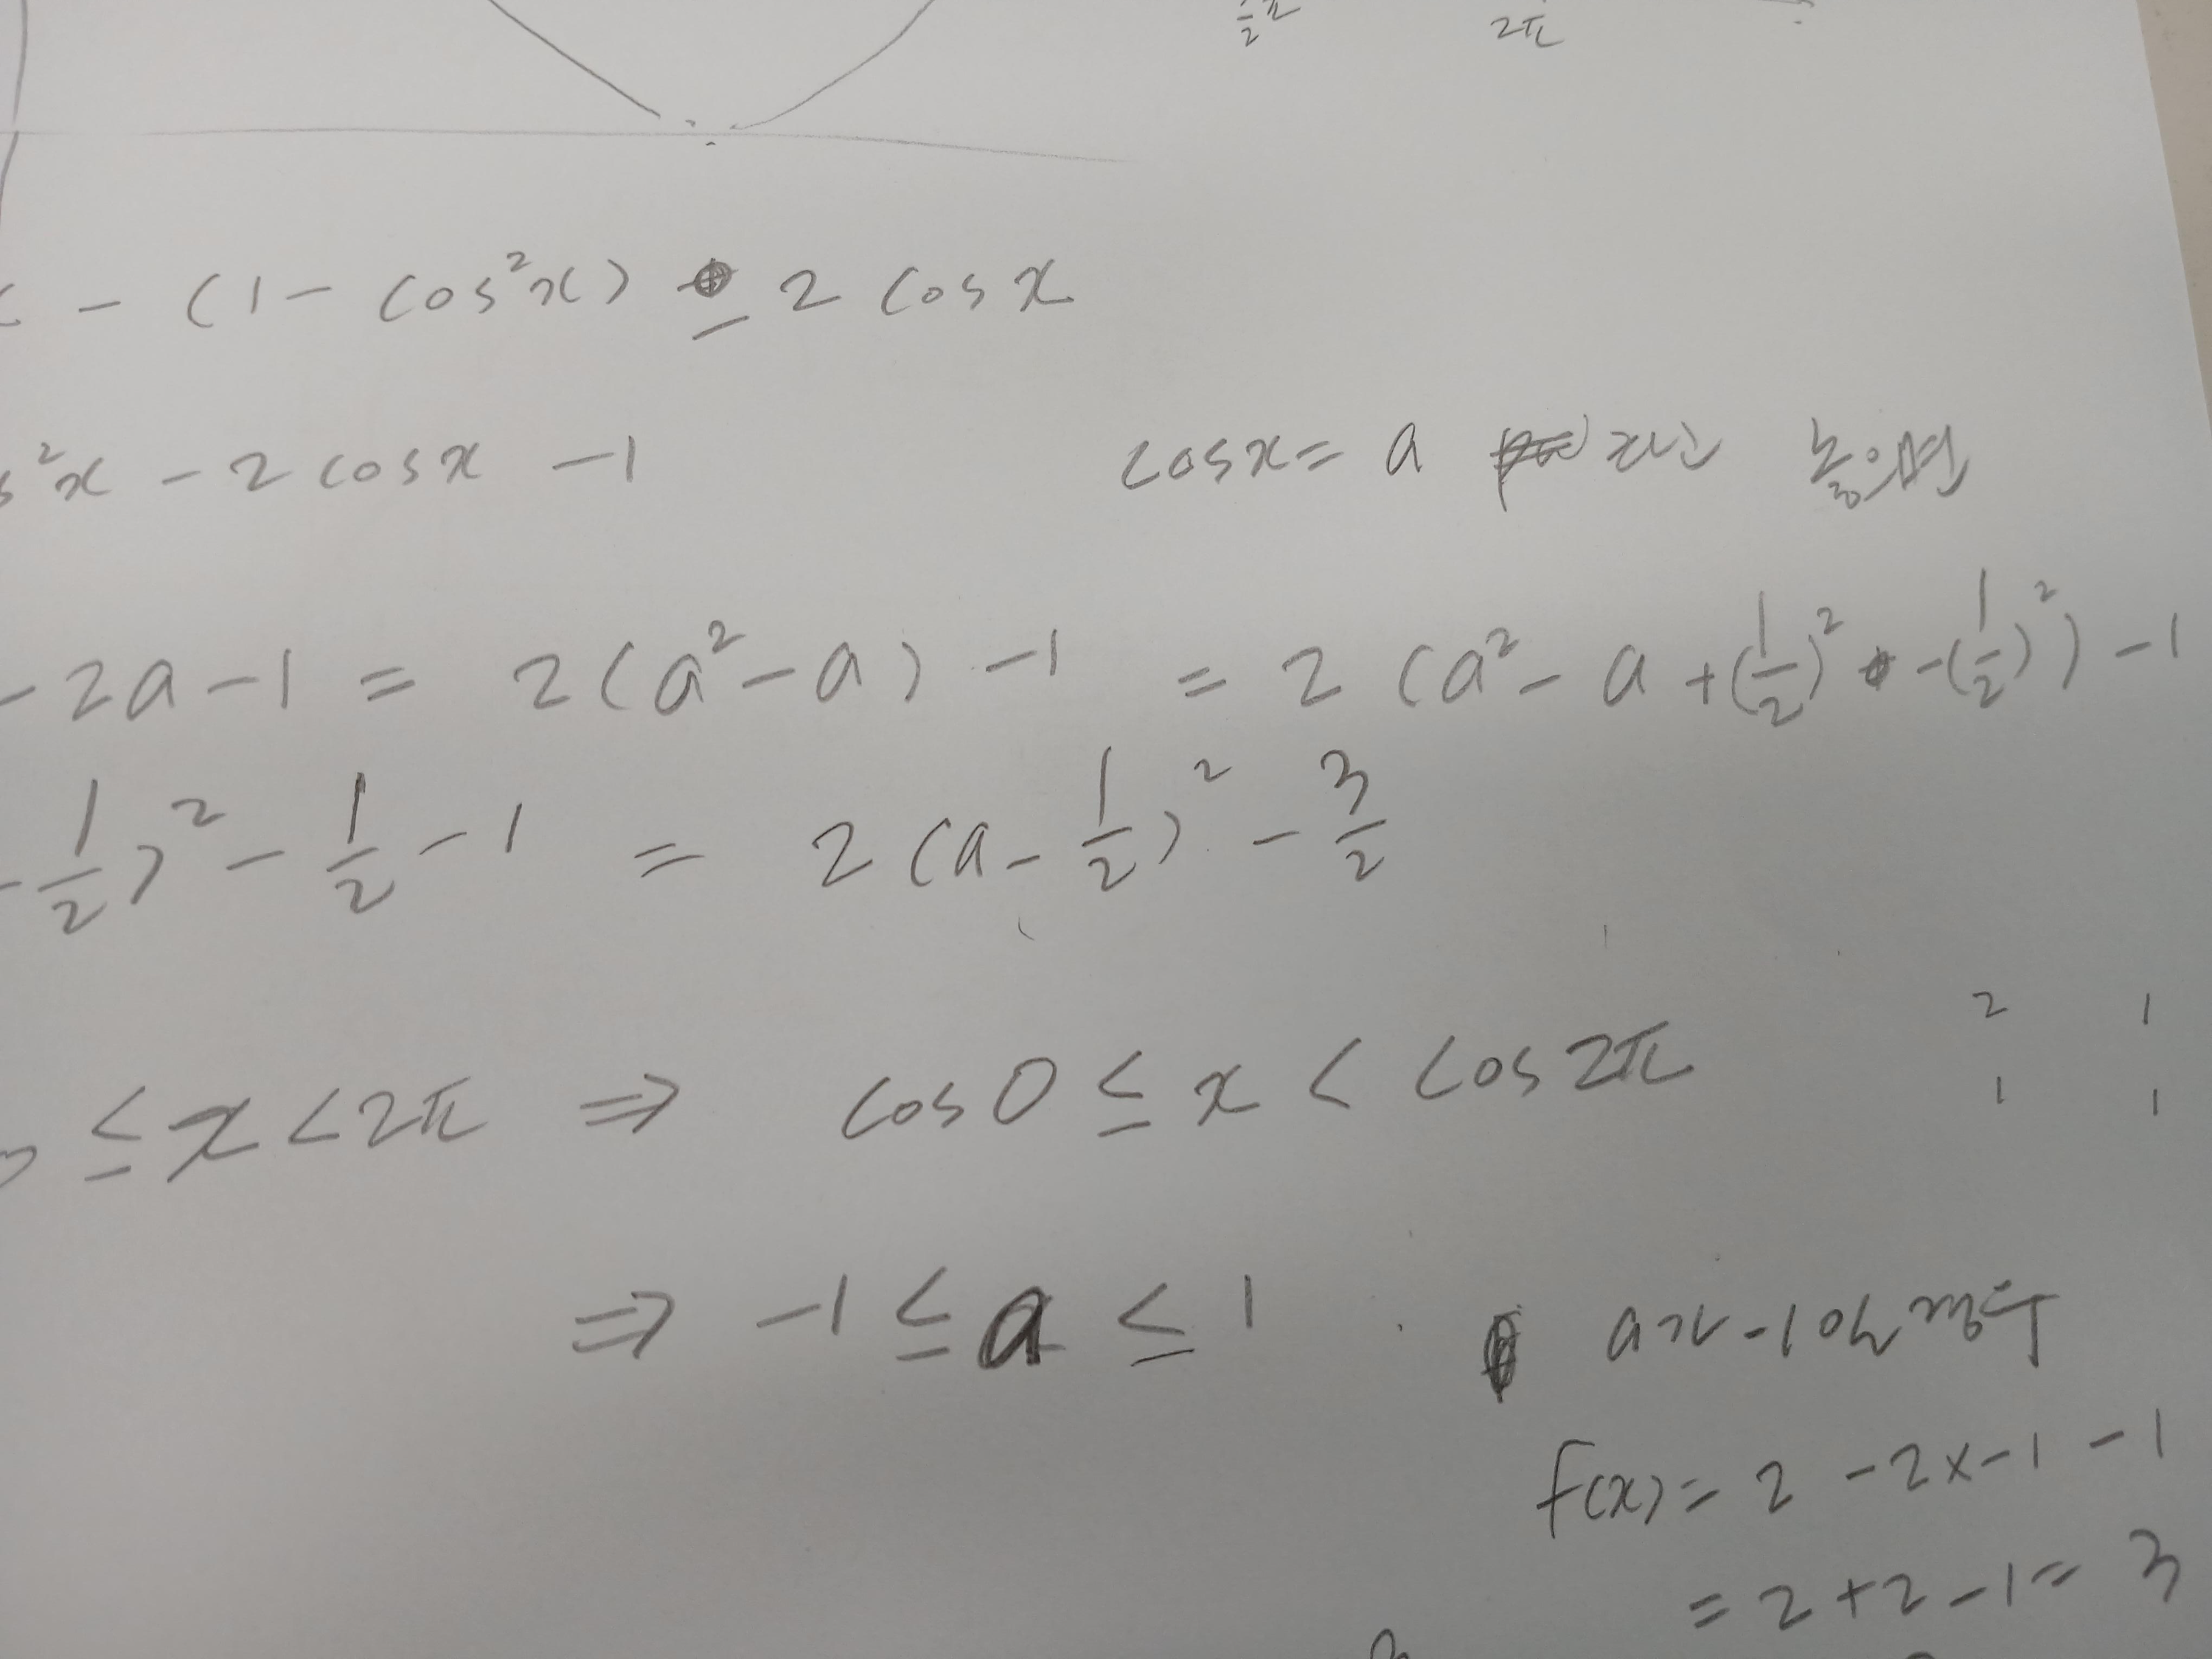 2π
- (1 - cos²x) - 2 cos x
s²x - 2 cos x - 1
cos x = a 라고 놓으면
- 2a - 1 = 2(a² - a) - 1 = 2(a² - a + (1/2)² - (1/2)²) - 1
- 1/2)² - 1/2 - 1 = 2(a - 1/2)² - 3/2
≤ x < 2π ⇒ cos 0 ≤ x < cos 2π
2 1
1 1
⇒ -1 ≤ a ≤ 1
a가 -1일 경우
f(x) = 2 - 2x-1 - 1
= 2 + 2 - 1 = 3